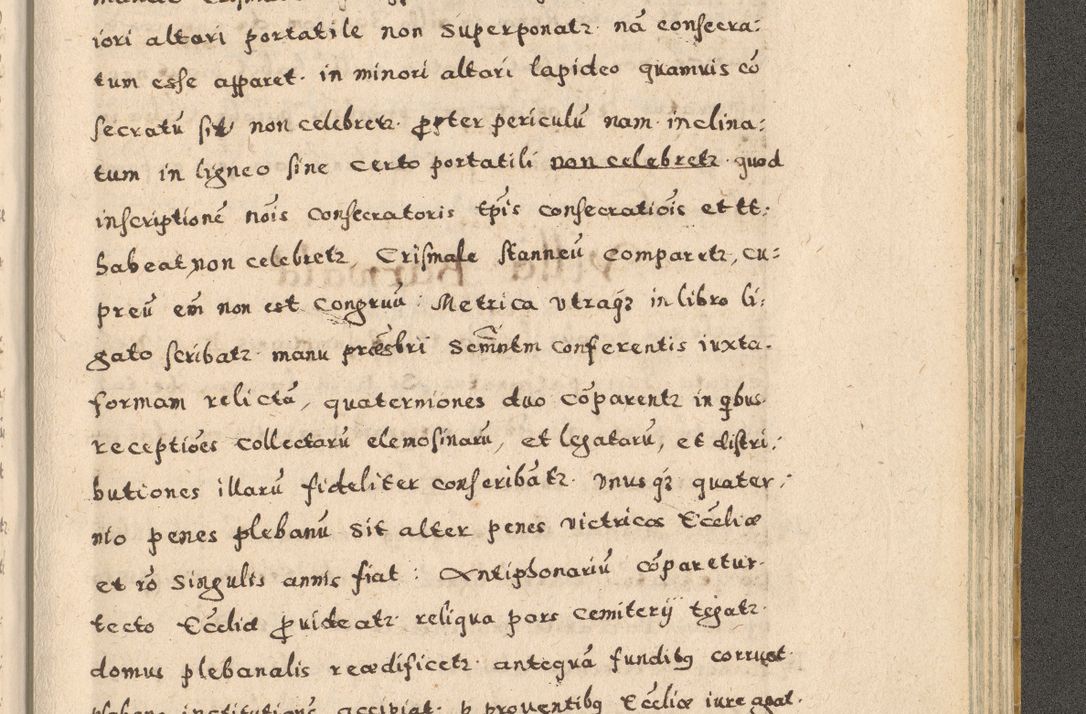 iori altari portatile non superponatr. nā consecra:
tum esse apparet. in minori altari lapideo quamuis cō
secratū sit non celebretr. ꝓpter periculū nam inclina:
tum in ligneo sine certo portatili non celebretr. quod
inscriptionē nōis consecratoris tp̄is consecratiōis et tt:
habeat, non celebretr, Crismale stanneū comparetr, cu:
preū em̄ non est congruū: Metrica vtraqȝ in libro li:
gato scribatr. manu præsbri Semⁿtm conferentis iuxta.
formam relictā, quaterniones duo cōparentr in qbus.
receptiōes collectarū elemosinarū, et legatarū, et distri:
butiones illarū fideliter conscribātr. vnus qȝ quater:
nio penes plebanū sit alter penes victricos Eccliæ
et rō singulis annis fiat: Antiphonariū cōparetur.
tecto Eccliæ ꝓuideatr. reliqua pars cemiterÿ tegatr.
domus plebanalis reædificetr. antequā funditꝰ corruat.
institutionē accipiat. p prouentibꝰ Eccliæ iure agat.